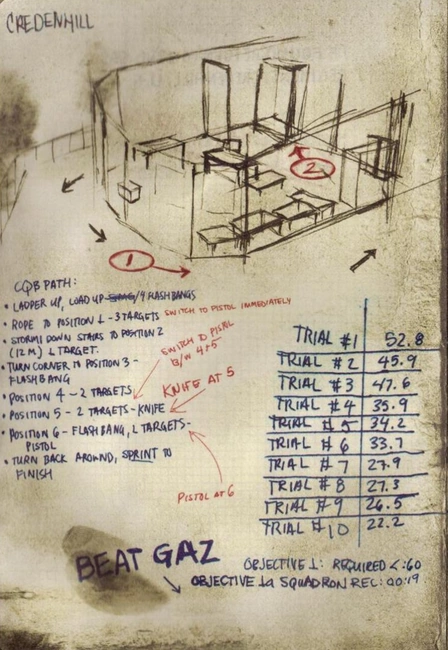 CREDENHILL
2
1
CQB PATH:
• LADDER UP, LOAD UP /4 FLASHBANGS
• ROPE TO POSITION 1 - 3 TARGETS SWITCH TO PISTOL IMMEDIATELY
• STORM DOWN STAIRS TO POSITION 2
(12 M.) 1 TARGET.
• TURN CORNER TO POSITION 3 -
FLASHBANG
• POSITION 4 - 2 TARGETS
SWITCH TO PISTOL
B/W 4+5
• POSITION 5 - 2 TARGETS - KNIFE
KNIFE AT 5
• POSITION 6 - FLASHBANG, 2 TARGETS -
PISTOL
• TURN BACK AROUND, SPRINT TO
FINISH
PISTOL AT 6
TRIAL #1 52.8
TRIAL #2 45.9
TRIAL #3 47.6
TRIAL #4 35.9
TRIAL #5 34.2
TRIAL #6 33.7
TRIAL #7 27.9
TRIAL #8 27.3
TRIAL #9 26.5
TRIAL #10 22.2
BEAT GAZ
OBJECTIVE 1: REQUIRED <:60
OBJECTIVE 1a SQUADRON REC: 00:19